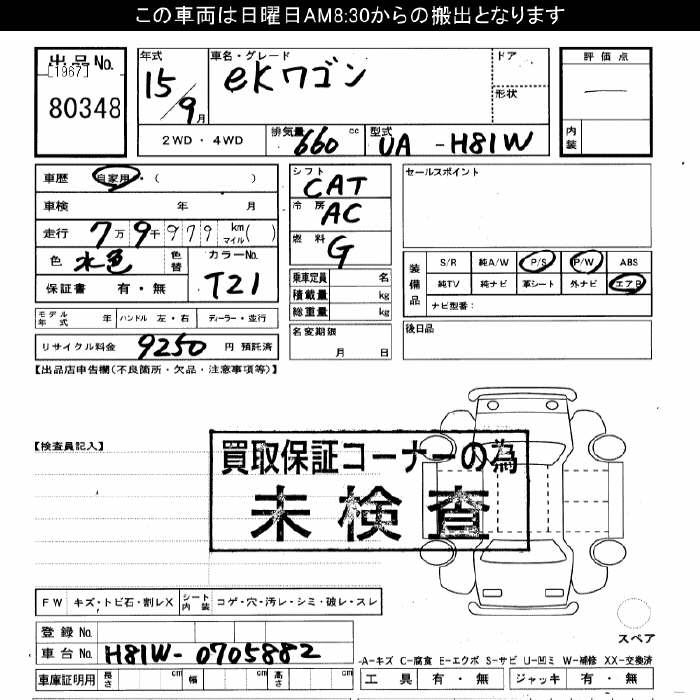 この車両は日曜日AM8:30からの搬出となります
出品No. 年式 車名・グレード ドア 評価点
[1967] 15/9月 eKワゴン 形状
80348
2WD・4WD 排気量 660 cc 型式 UA -H81W 内装
車歴 自家用・( ) シフト CAT セールスポイント
車検 年 月 冷房 AC
走行 7万9千979 km マイル( ) 燃料 G
色 水色 色替 カラーNo. T21
保証書 有・無
乗車定員 名
積載量 kg
総重量 kg
装備品 S/R 純A/W P/S P/W ABS
純TV 純ナビ 革シート 外ナビ エアB
ナビ型番:
モデル年式 年 ハンドル 左・右 ディーラー・並行 名変期限 月 日 後日品
リサイクル料金 9250 円 預託済
【出品店申告欄(不良箇所・欠品・注意事項等)】
【検査員記入】
買取保証コーナーの為
未検査
FW キズ・トビ石・割レX シート内装 コゲ・穴・汚レ・シミ・破レ・スレ
スペア
登録No.
車台No. H81W-0705882
-A-キズ C-腐食 E-エクボ S-サビ U-凹ミ W-補修 XX-交換済
車庫証明用 長さ cm 幅 cm 高さ cm 工具 有・無 ジャッキ 有・無